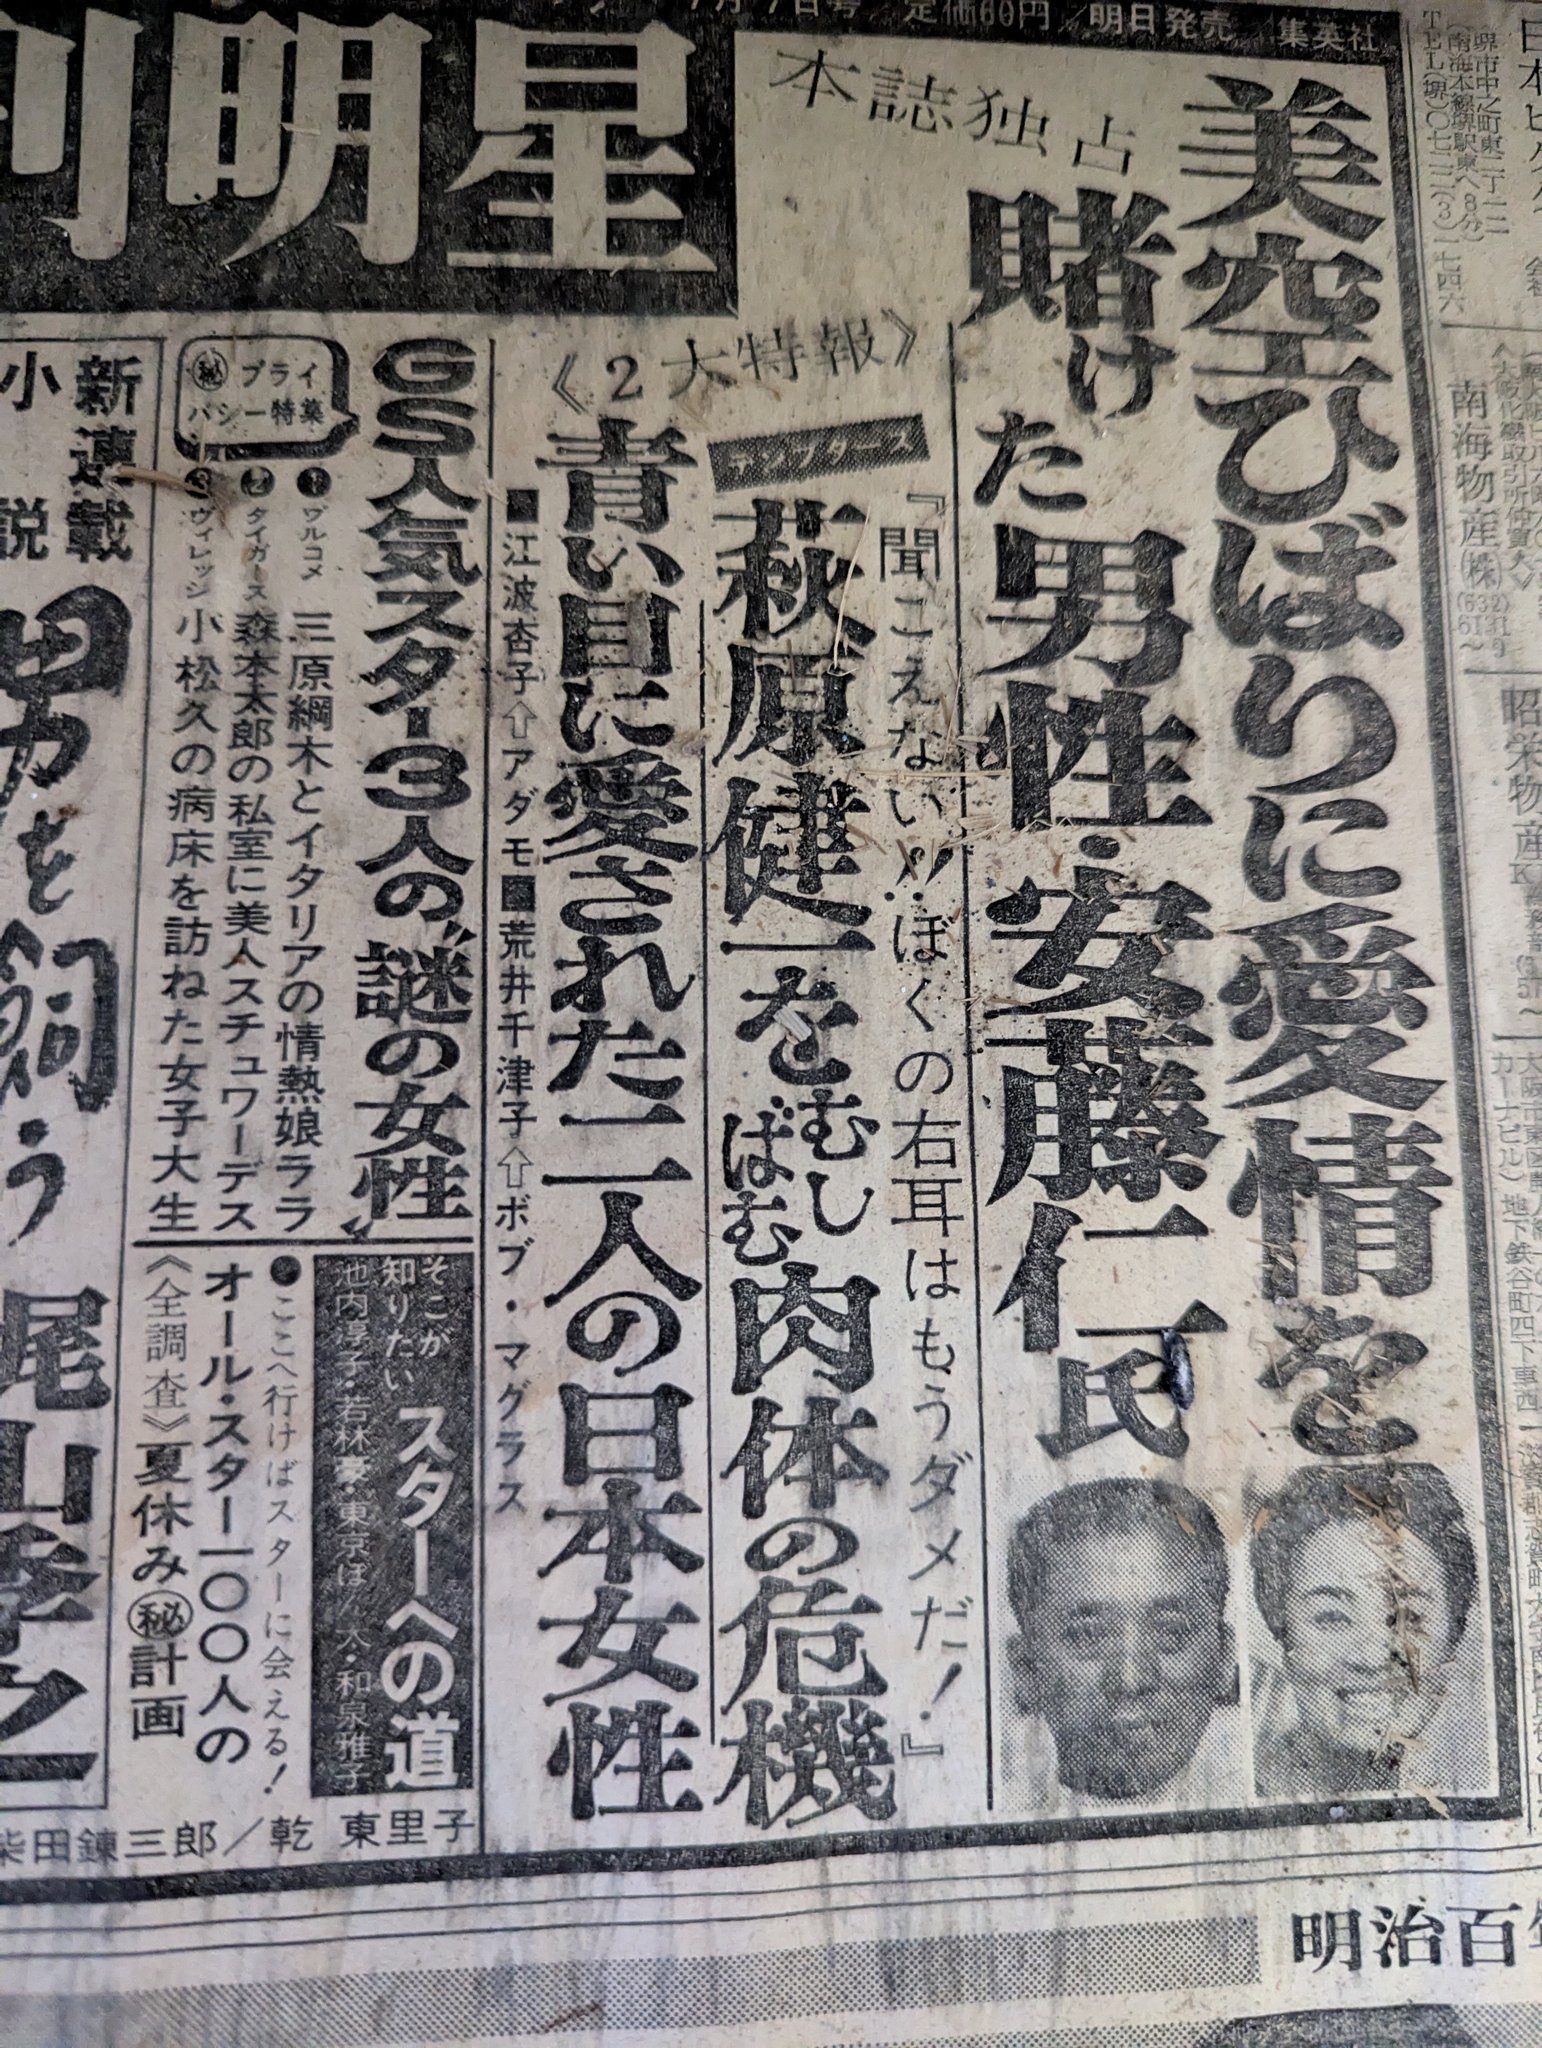 月7日号／定価60円／明日発売／集英社
明星
本誌独占
美空ひばりに愛情を
賭けた男性・安藤仁氏
《2大特報》
テンプターズ
『聞こえない!!‥ぼくの右耳はもうダメだ！』
萩原健一をむしばむ肉体の危機
青い目に愛された二人の日本女性
■江波杏子⇧アダモ■荒井千津子⇧ボブ・マグラス
GS人気スター3人の〝謎の女性〟
㊙プライ
バシー特集
❶ブルコメ 三原綱木とイタリアの情熱娘ララ
❷タイガース 森本太郎の私室に美人スチュワーデス
❸ヴィレッジ 小松久の病床を訪ねた女子大生
そこが
知りたい
スターへの道
池内淳子・若林豪・東京ぼん太・和泉雅子
●ここへ行けばスターに会える！
オール・スター一〇〇人の
《全調査》夏休み㊙計画
新連載
小説
男を飼う
尾山季之
柴田錬三郎／乾 東里子
堺市中之町東二丁一二
(南海本線堺駅東へ8分)
TEL(堺)〇七二二(3)一七四六
南海物産(株)
昭栄物産K
地下鉄谷町四丁下車西
明治百